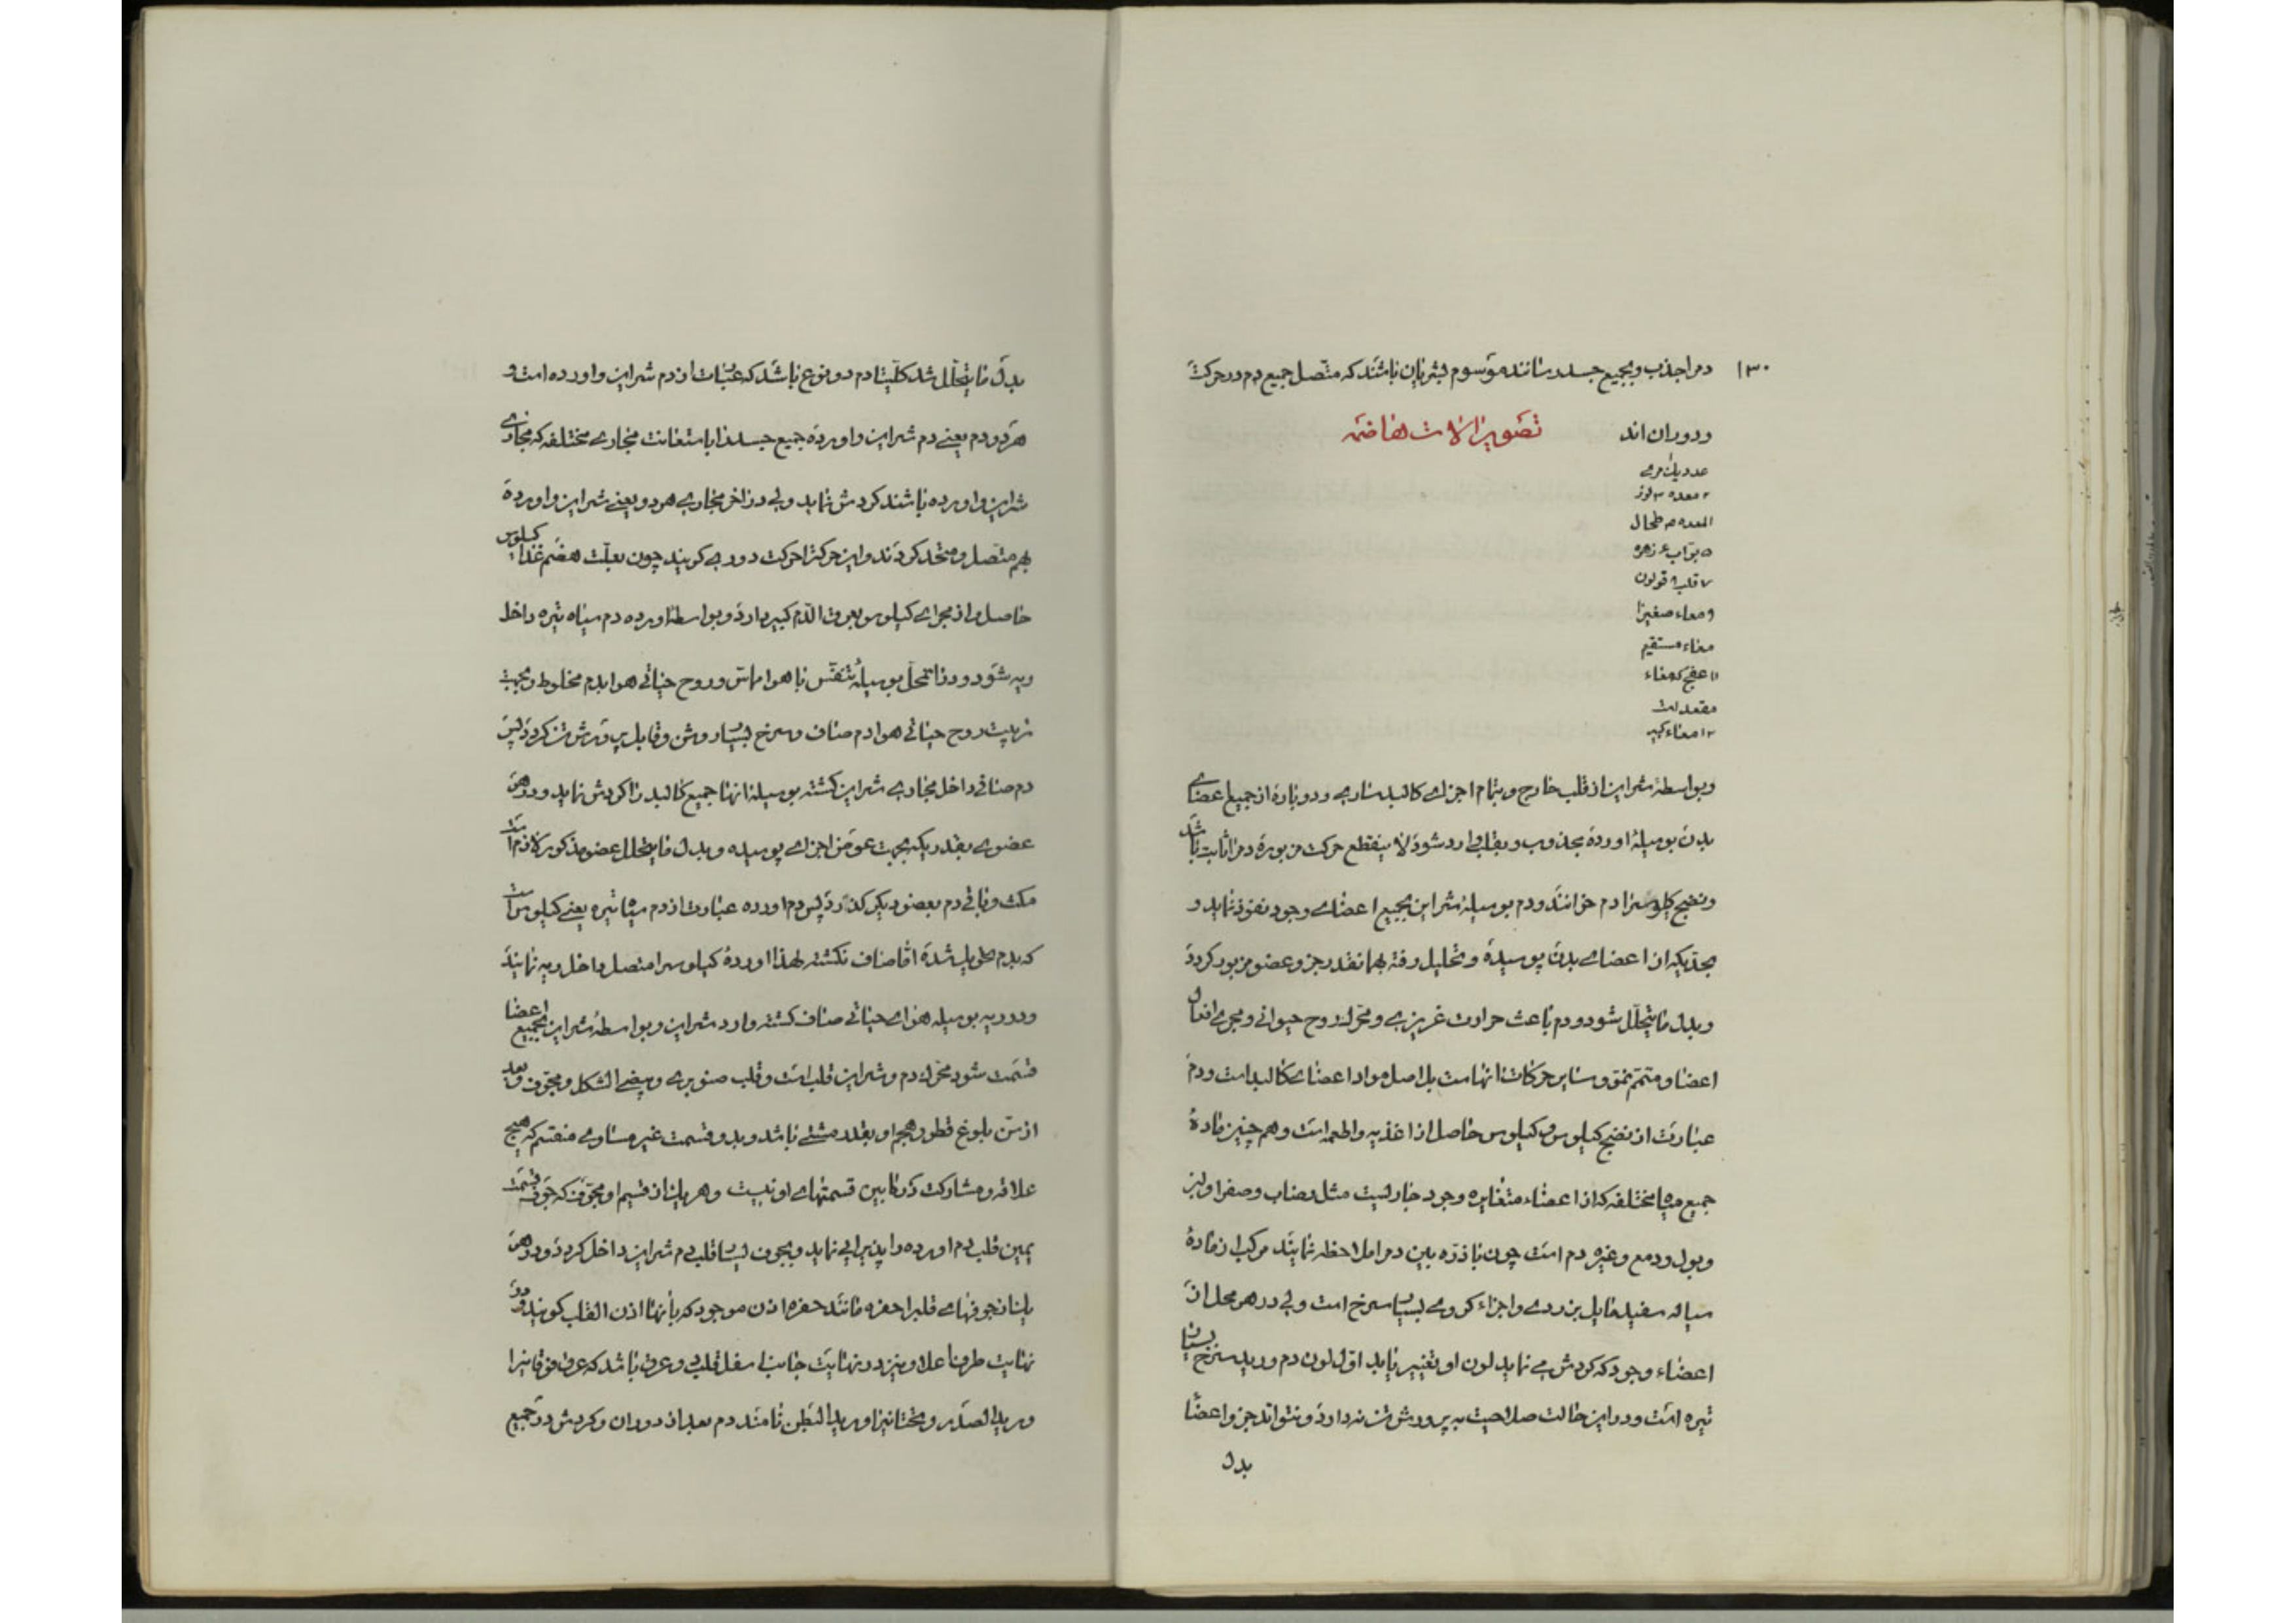 ۱۳۰
دم را جذب و بجمیع جسد رسانند موسوم بشریان باشند که متصل جمیع دم در حرکت
و دوران اند
تصویر الات هاضمه
عدد یک مری
۲ معده ۳ لوز
المعده ۴ طحال
۵ بواب ۶ زهره
۷ قلب ۸ قولون
۹ معاء صغیر ۱۰
معاء مستقیم
۱۱ عفج که معاء
مقعد است
۱۲ معاء کبیر
و بواسطهٔ شراین از قلب خارج و بتمام اجزای کالبد ساری و دوباره از جمیع اعضای
بدن بوسیلهٔ اورده مجذوب و بقلب وارد شود لا ینقطع حرکت مزبوره دم را ثابت باشد
و نضج کیلوس را دم خوانند و دم بوسیلهٔ شراین بجمیع اعضای وجود نفوذ نماید و
بحدیکه از اعضای بدن پوسیده و تحلیل رفته بهمانقدر جزو عضو مزبور کردد
و بدل ما یتحلل شود و دم باعث حرارت غریزی و محرک روح حیوانی و مجری افعال
اعضا و متمم نمو و سایر حرکات انهاست بل اصل مواد اعضای کالبد است و دم
عبارت از نضج کیلوس و کیلوس حاصل از اغذیه و اطعمه است و هم چنین ماده
جمیع میاه مختلفه که از اعضاء متغایره وجود جاریست مثل رضاب و صفرا و لبن
و بول و دمع و غیره دم است چون با ذره بین دم را ملاحظه نمایند مرکب از ماده
سیاله سفید مایل بزردی و اجزاء کروی بسیار سرخ است ولی در هر محل از
اعضاء وجود که کردش می نماید لون او تغییر یابد اول لون دم ورید سرخ بسیار
تیره است و در این حالت صلاحیت به پرورش تن ندارد و نتواند جزو اعضا
بدل
بدل ما یتحلل شد کلیتا دم دو نوع باشد که عبارت از دم شراین و اورده است و
هر دو دم یعنی دم شراین و اورده جمیع جسد را باستعانت مجاری مختلفه که مجاری
شراین و اورده باشند کردش نماید ولی در اخر مجاری هر دو یعنی شراین و اورده
بهم متصل و متحد کردند و این حرکت را حرکت دوری کویند چون بعلت هضم غذا کیلوس
حاصل و از مجرای کیلوس بعروق الدم کبیر وارد و بواسطه اورده دم سیاه تیره داخل
ریه شود و در انمحل بوسیلهٔ تنفس با هوا مماس و روح حیاتی هوا بدم مخلوط و بجهت
تربیت روح حیاتی هوا دم صاف و سرخ بسیار روشن و قابل پرورش تن کردد پس
دم صافی داخل مجاری شراین کشته بوسیله انها جمیع کالبد را کردش نماید و در هر
عضوی بقدریکه بجهت عوض اجزای پوسیده و بدل ما یتحلل عضو مذکور لازم است
مکث و باقی دم بعضو دیکر کذرد پس دم اورده عبارت از دم سیاه تیره یعنی کیلوس است
که بدم تبدیل شده اما صاف نکشته لهذا اورده کیلوس را متصل داخل ریه نمایند
و در ریه بوسیله هوای حیاتی صاف کشته وارد شراین و بواسطهٔ شراین بجمیع اعضا
قسمت شود محرک دم و شراین قلب است و قلب صنوبری و بیضی الشکل و مجوف و بعد
از سن بلوغ قطور حجم او بقدر مشتی باشد و بدو قسمت غیر مساوی منقسم که هیچ
علاقه و مشارکت در مابین قسمتهای او نیست و هر یک از قسیم او مجوف که جوف قسمت
یمین قلب دم اورده را پذیرایی نماید و بجوف یسار قلب دم شراین داخل کردد و در هر
یک از جوفهای قلب را حفره مانند حفره اذن موجود که بانها اذن القلب کویند و در
نهایت طرف اعلا و نیز در نهایت جانب اسفل قلب دو عرق باشد که عرق فوقانی را
ورید الصدر و تحتانی را ورید البطن نامند دم بعد از دوران و کردش در جمیع